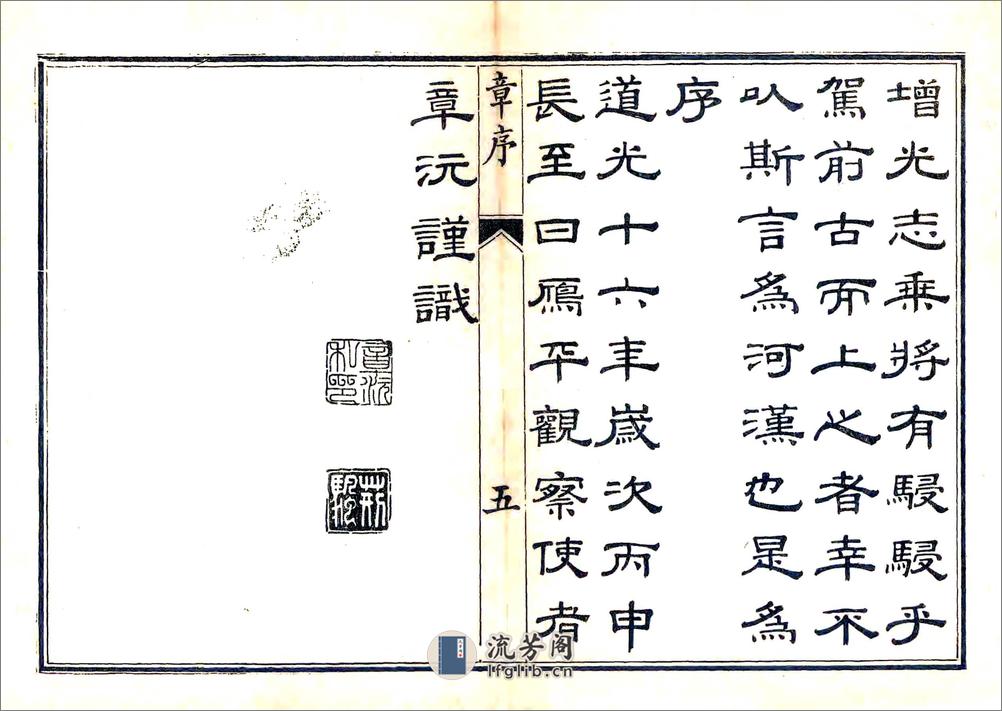 增光志乗將有駸駸乎
駕前古而上之者幸不
以斯言為河漢也是為
序
道光十六年歲次丙申
長至日鴈平觀察使者
章沅謹識
章序
五
章沅私印
流芳阁
lfglib.cn